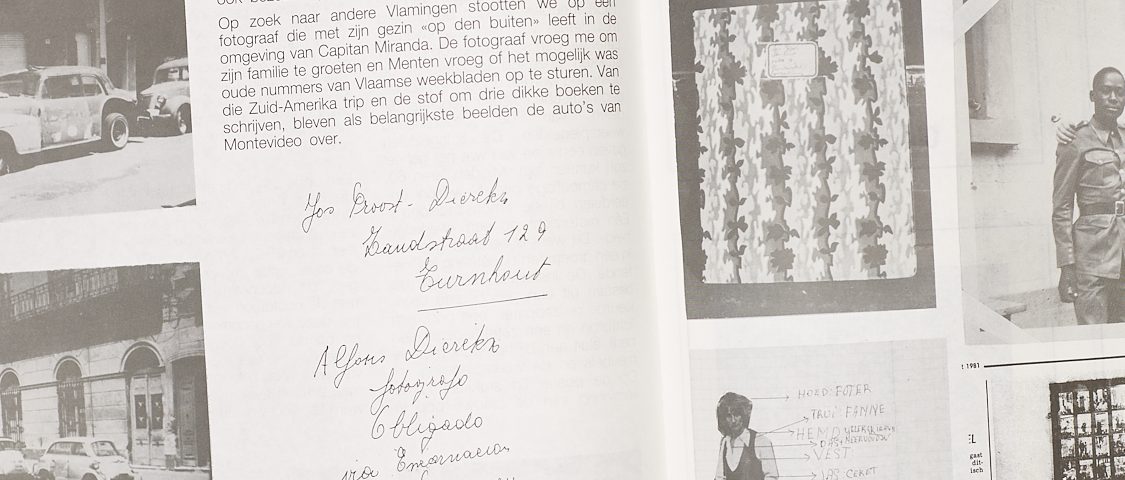 Op zoek naar andere Vlamingen stootten we op een
fotograaf die met zijn gezin «op den buiten» leeft in de
omgeving van Capitan Miranda. De fotograaf vroeg me om
zijn familie te groeten en Menten vroeg of het mogelijk was
oude nummers van Vlaamse weekbladen op te sturen. Van
die Zuid-Amerika trip en de stof om drie dikke boeken te
schrijven, bleven als belangrijkste beelden de auto's van
Montevideo over.
Jos Proost - Dierckx
Zandstraat 129
Turnhout
Alfons Dierckx
fotografo
Obligado
via Encarnacion
HOED: FOTER
TRUI: FANNE
HEMD
VEST
t 1981
EL
gaat
dit-
isch